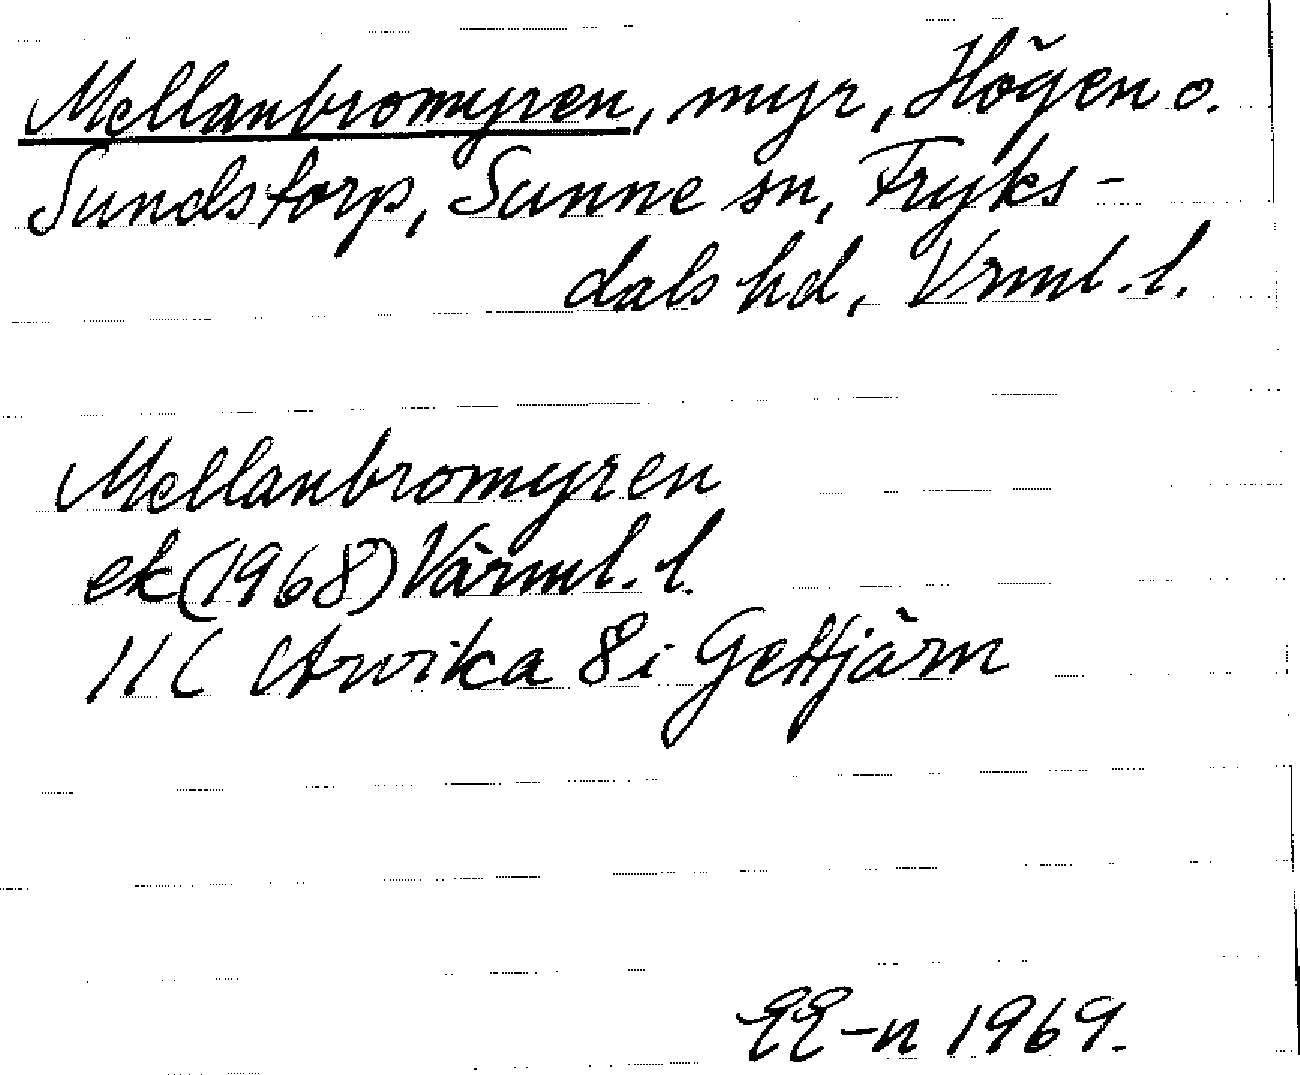 Mellanbromyren, myr, Högen o.
Sundstorp, Sunne sn, Fryks-
dals hd, Vrml. l.
Mellanbromyren
ek (1968) Värml. l.
11C Arvika 8i Gettjärn
EE-n 1969.